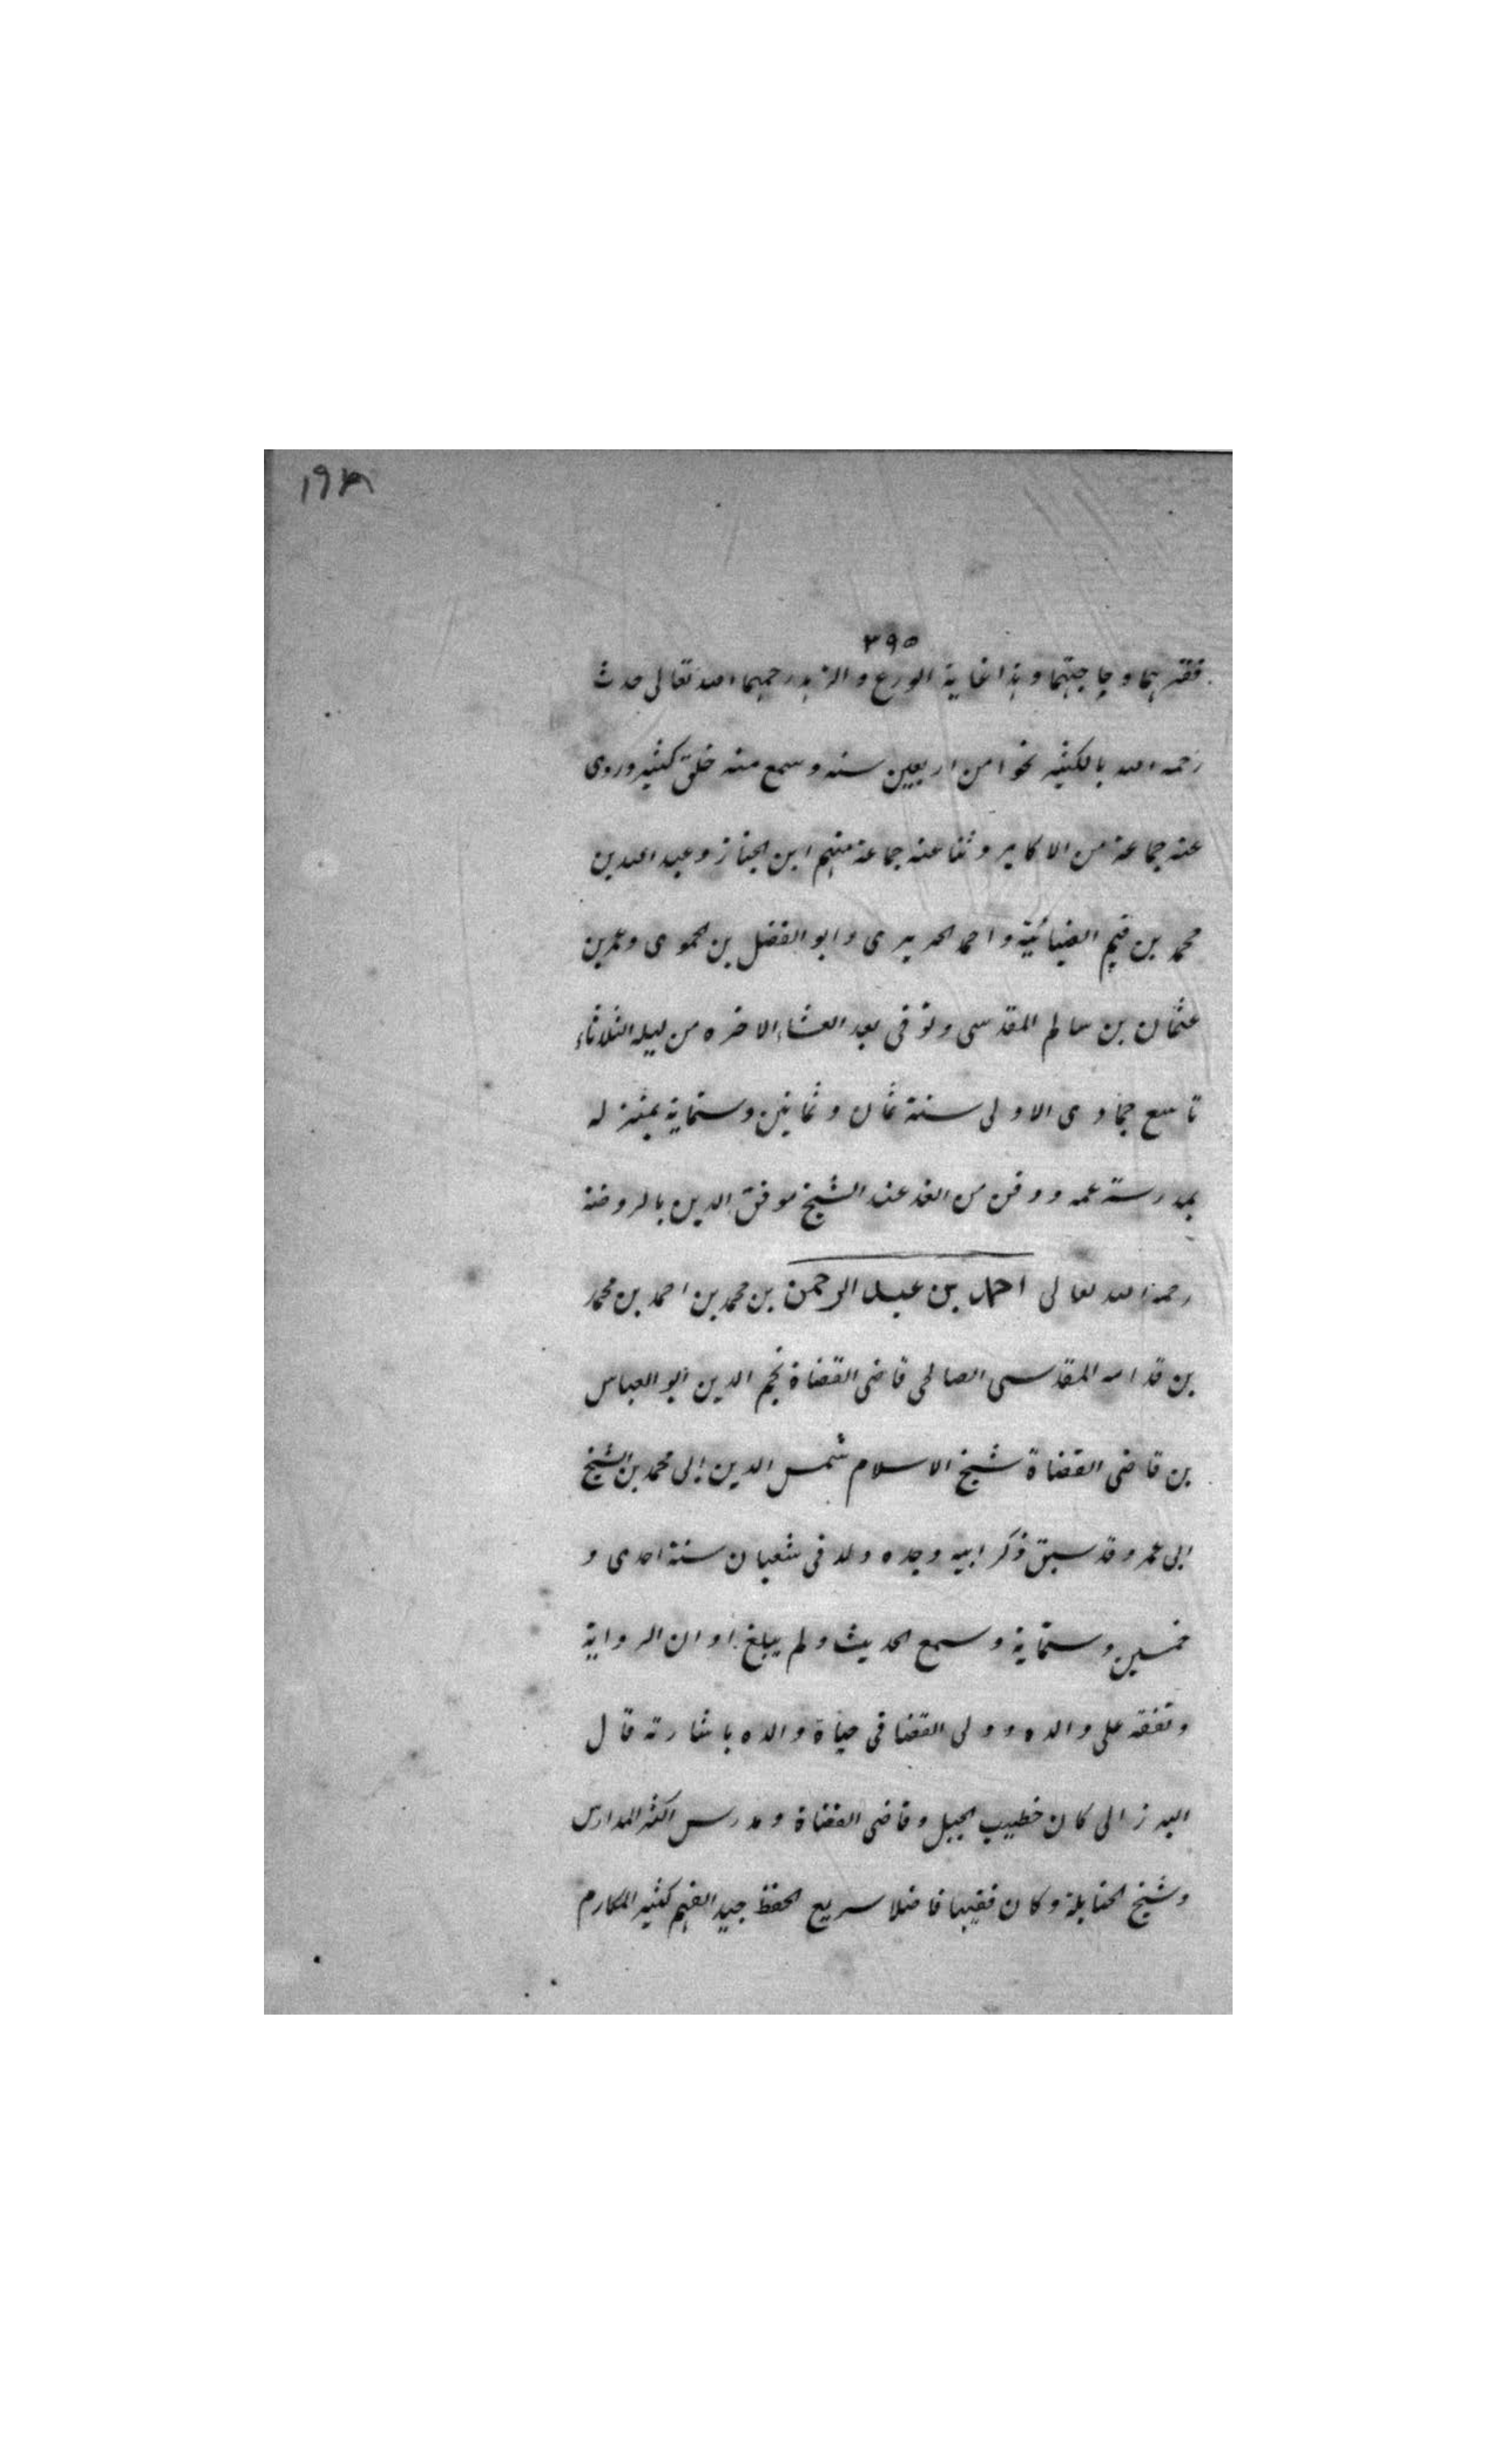 ١٩٨
٣٩٥
فقرهما وحاجتهما وهذا غاية الورع والزهد رحمهما الله تعالى حدث
رحمه الله بالكثير نحوا من اربعين سنه وسمع منه خلق كثير وروى
عنه جماعة من الاكابر وثنا عنه جماعة منهم ابن الخباز وعبد الله بن
محمد بن قيم الضيائية واحمد الحريرى وابو الفضل بن الحموى وعمر بن
عثمان بن سالم المقدسى وتوفى بعد العشاء الاخره من ليله الثلاثاء
تاسع جمادى الاولى سنة ثمان وثمانين وستماية بمنزله
بمدرسة عمه ودفن من الغد عند الشيخ موفق الدين بالروضة
رحمه الله تعالى احمد بن عبد الرحمن بن محمد بن احمد بن محمد
بن قدامه المقدسى الصالحى قاضى القضاة نجم الدين ابو العباس
بن قاضى القضاة شيخ الاسلام شمس الدين ابى محمد بن الشيخ
ابى عمر وقد سبق ذكر ابيه وجده ولد فى شعبان سنة احدى و
خمسين وستماية وسمع الحديث ولم يبلغ اوان الرواية
وتفقه على والده وولى القضا فى حياة والده باشارته قال
البرزالى كان خطيب الجبل وقاضى القضاة ومدرس اكثر المدارس
وشيخ الحنابلة وكان فقيها فاضلا سريع الحفظ جيد الفهم كثير المكارم